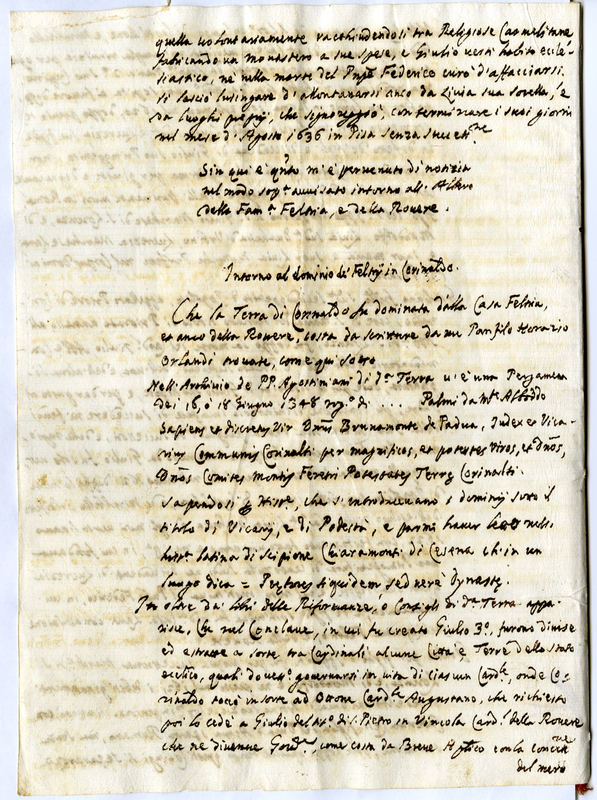 quella volontariamente racchiudendosi tra Religiose Carmelitane
fabricando un monastero a sue spese, e Giulio vestì habito eccle-
siastico, ne nella morte del Pnpe Federico curò d'affacciarsi.
si lasciò lusingare d'allontanarsi anco da Livia sua sorella, e
da luoghi proprij, che signoreggiò, con terminare i suoi giorni
nel mese d'Agosto 1636 in Pisa senza success.ne
Sin qui è q.nto m'è pervenuto di notizia
nel modo sop.a avvisato intorno all' Albero
della Fam.a Feltria, e della Rovere.
Intorno al dominio de' Feltrij in Corinaldo.
Che la Terra di Corinaldo fu dominata dalla Casa Feltria,
et anco della Rovere, costa da scritture da me Panfilo Horazio
Orlandi trovate, come qui sotto
Nell' Archivio de PP. Agostiniani di d.a Terra v'è una Pergamena
dei 16, ò 18 Giugno 1348 di ... Palmi da
Sapiens et discretus Vir Dnus Brunamonte de Padua, Judex et Vica-
rius Communis Corinalti per magnificos, et potentes Viros, et Dnos,
Dnos Comites Montis Feretri Potestates Terre Corinalti.
Sapendosi p Hist.e, che s'introducevano i dominij sotto il
titolo di Vicarij, e di Podestà, e parmi haver letto nell'
hist.a latina di Scipione Chiaramonti di Cesena ch' in un
luogo dica = Pretores siquidem, sed vere Dynaste.
In oltre da' libri delle Riformanze, ò Consigli di d.a Terra appa-
risce, che nel Conclave, in cui fu creato Giulio 3.o, furono divise
ed estratte a sorte tra Cardinali alcune Città e Terre dello stato
eccl.tico, quali dovess.o governarsi in vita di ciascun Card.le, onde Co-
rinaldo toccò in sorte ad Ottone Card.le Augustano, che richiesto
poi lo cedè a Giulio del tit.o di S. Pietro in Vincola Card.l della Rovere
che ne divenne Gov.re, come costa da Breve Aplico con la conces.ne
del mero